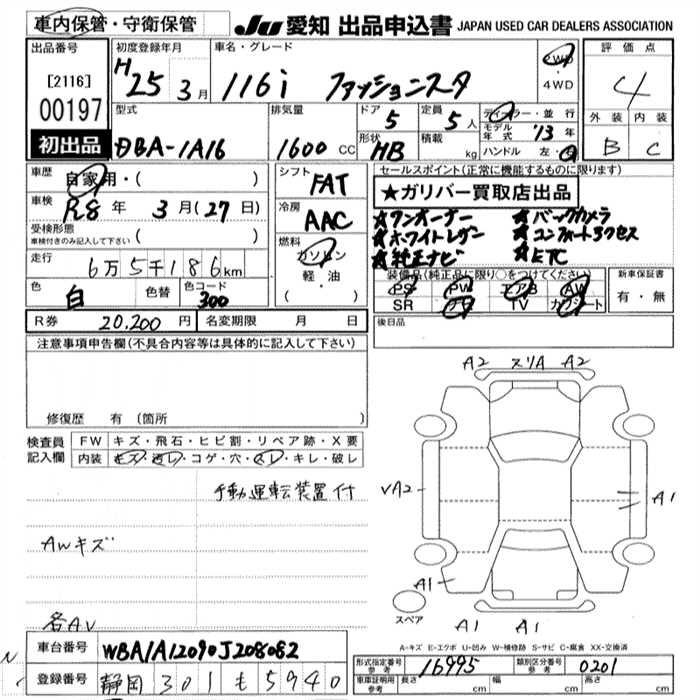 車内保管・守衛保管
JU 愛知 出品申込書 JAPAN USED CAR DEALERS ASSOCIATION
出品番号
[2116]
00197
初出品
初度登録年月
H25年3月
車名・グレード
116i ファッショニスタ
2WD・4WD
評価点
4
外装 内装
B C
型式
DBA-1A16
排気量
1600 CC
ドア 5
形状 HB
定員 5人
積載 kg
ディーラー・並行
モデル年式 '13年
ハンドル 左・右
車歴
自家用・( )
車検
R8年 3月(27日)
受検形態
車検付きのみ記入して下さい
( )
走行
6万5千186km
色
白
色替
色コード
300
シフト
FAT
冷房
AAC
燃料
ガソリン
軽・油
( )
セールスポイント(正常に機能するものに限ります)
★ガリバー買取店出品
★ワンオーナー ★バックカメラ
★ホワイトレザー ★コンフォートアクセス
★純正ナビ ★ETC
装備品(純正品に限り○をつけてください)
PS PW エアB AW
SR ナビ TV カワシート
新車保証書
有・無
R券 20,200円 名変期限 月 日
後日品
注意事項申告欄(不具合内容等は具体的に記入して下さい)
修復歴 有(箇所 )
検査員記入欄
FW キズ・飛石・ヒビ割・リペア跡・X要
内装 キズ・汚レ・コゲ・穴・スレ・キレ・破レ
手動運転装置付
AWキズ
各AV
A2 スリA A2
VA2
A1
A1
A1 A1
スペア
A-キズ E-エクボ U-凹み W-補修跡 S-サビ C-腐食 XX-交換済
車台番号 WBA1A12090J208082
登録番号 静岡 301 も 5940
形式指定番号 参考 16995
類別区分番号 参考 0201
車庫証明用 参考 長さ cm 幅 cm 高さ cm